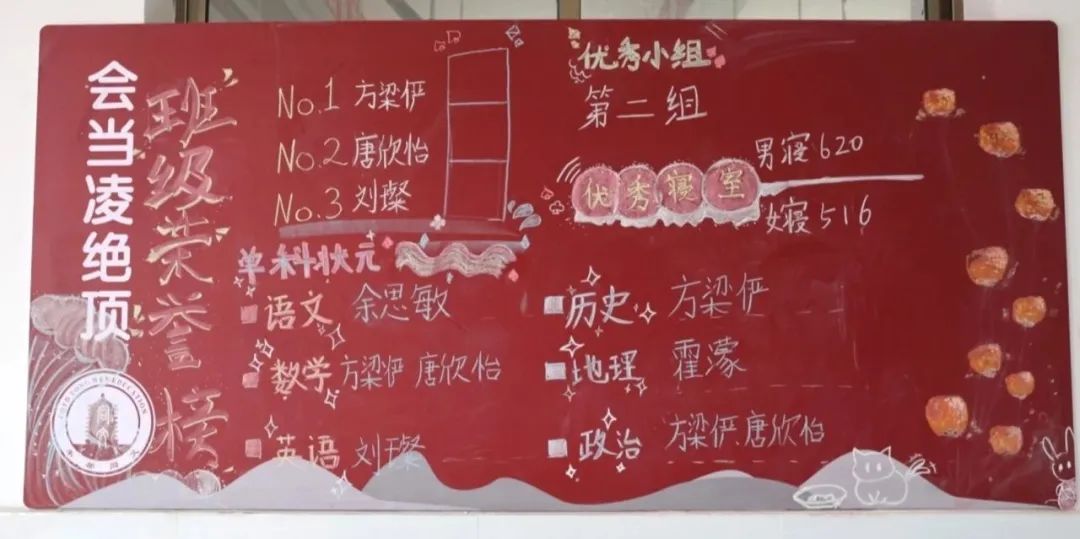 会当凌绝顶
班级荣誉榜
No.1 方梁俨
No.2 唐欣怡
No.3 刘璨
优秀小组
第二组
优秀寝室
男寝620
女寝516
单科状元
语文 余思敏
数学 方梁俨 唐欣怡
英语 刘璨
历史 方梁俨
地理 霍濛
政治 方梁俨 唐欣怡